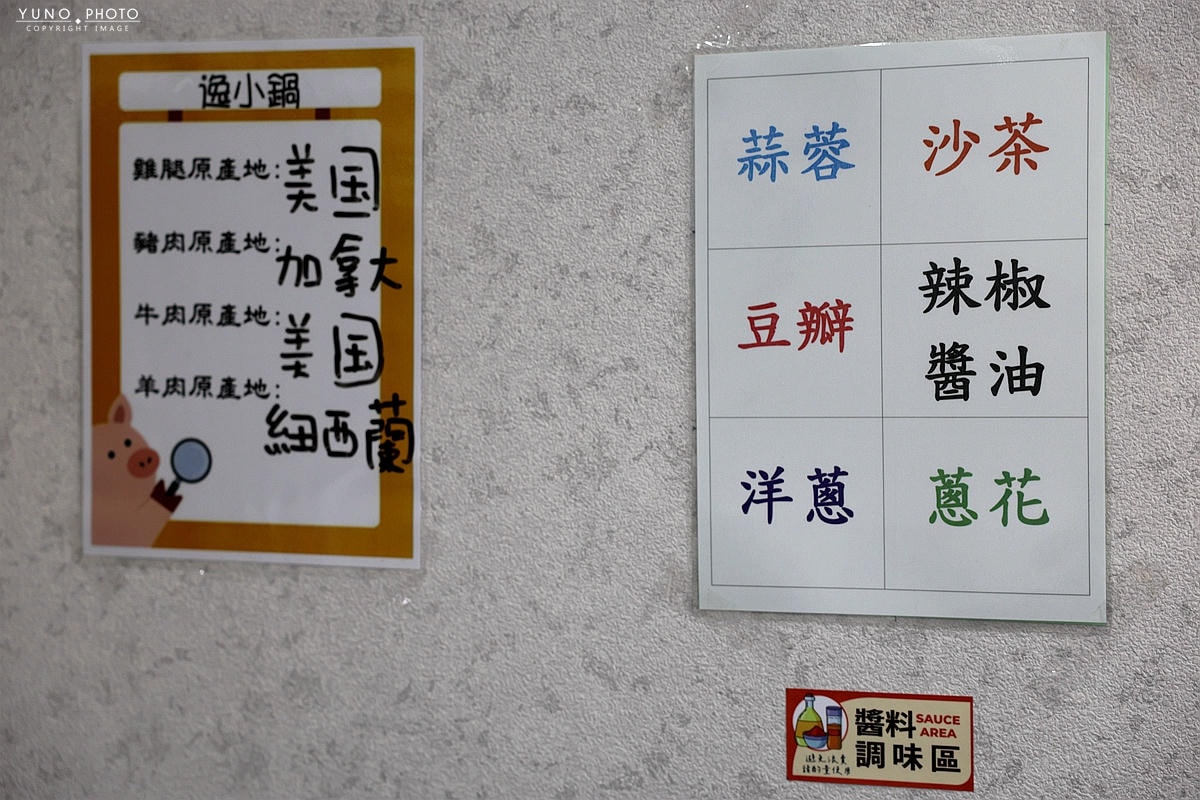 YUNO PHOTO
COPYRIGHT IMAGE
逸小鍋
雞腿原產地:美国
豬肉原產地:加拿大
牛肉原產地:美国
羊肉原產地:紐西蘭
蒜蓉
沙茶
豆瓣
辣椒
醬油
洋蔥
蔥花
醬料 SAUCE
調味區 AREA
避免浪費
請酌量使用